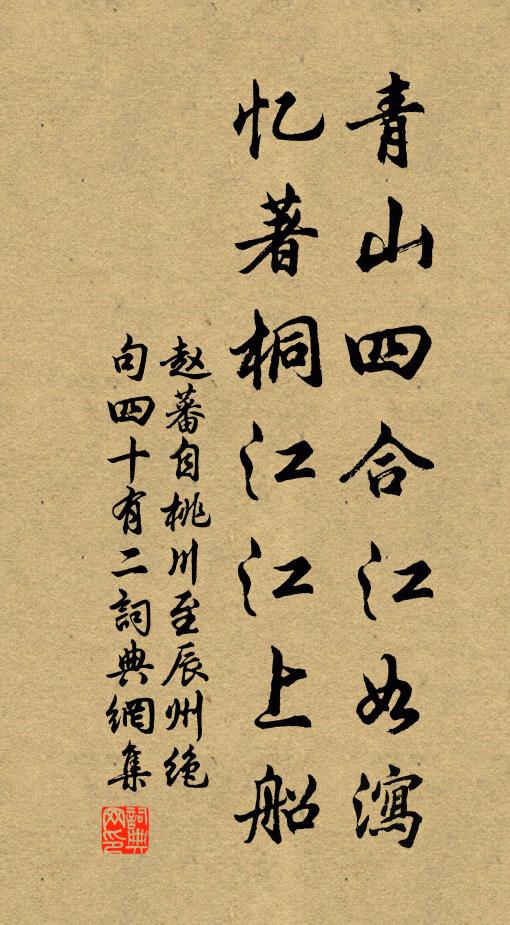 青山四合江如瀉
忆著桐江江上船
赵蕃自桃川至辰州绝
句四十有二詞典網集
詞典网印